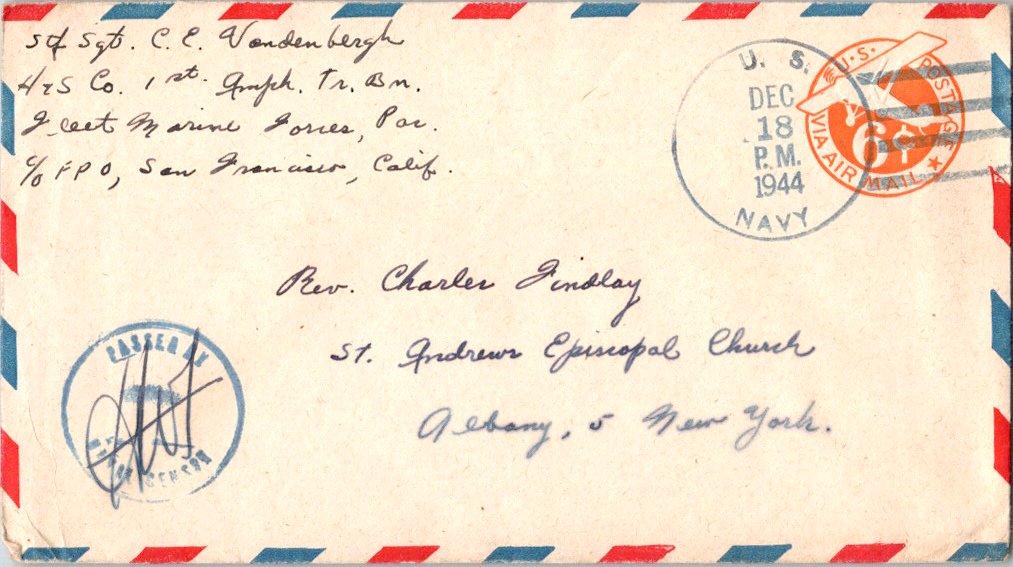 Stf Sgt. C. E. Vandenbergh
H & S Co. 1st. Amph. Tr. Bn.
Fleet Marine Forces, Pac.
c/o FPO, San Francisco, Calif.
U. S.
DEC
18
P.M.
1944
NAVY
U.S. POSTAGE
6c
VIA AIR MAIL
Rev. Charles Findlay
St. Andrews Episcopal Church
Albany, 5 New York.
PASSED BY
NAVAL CENSOR